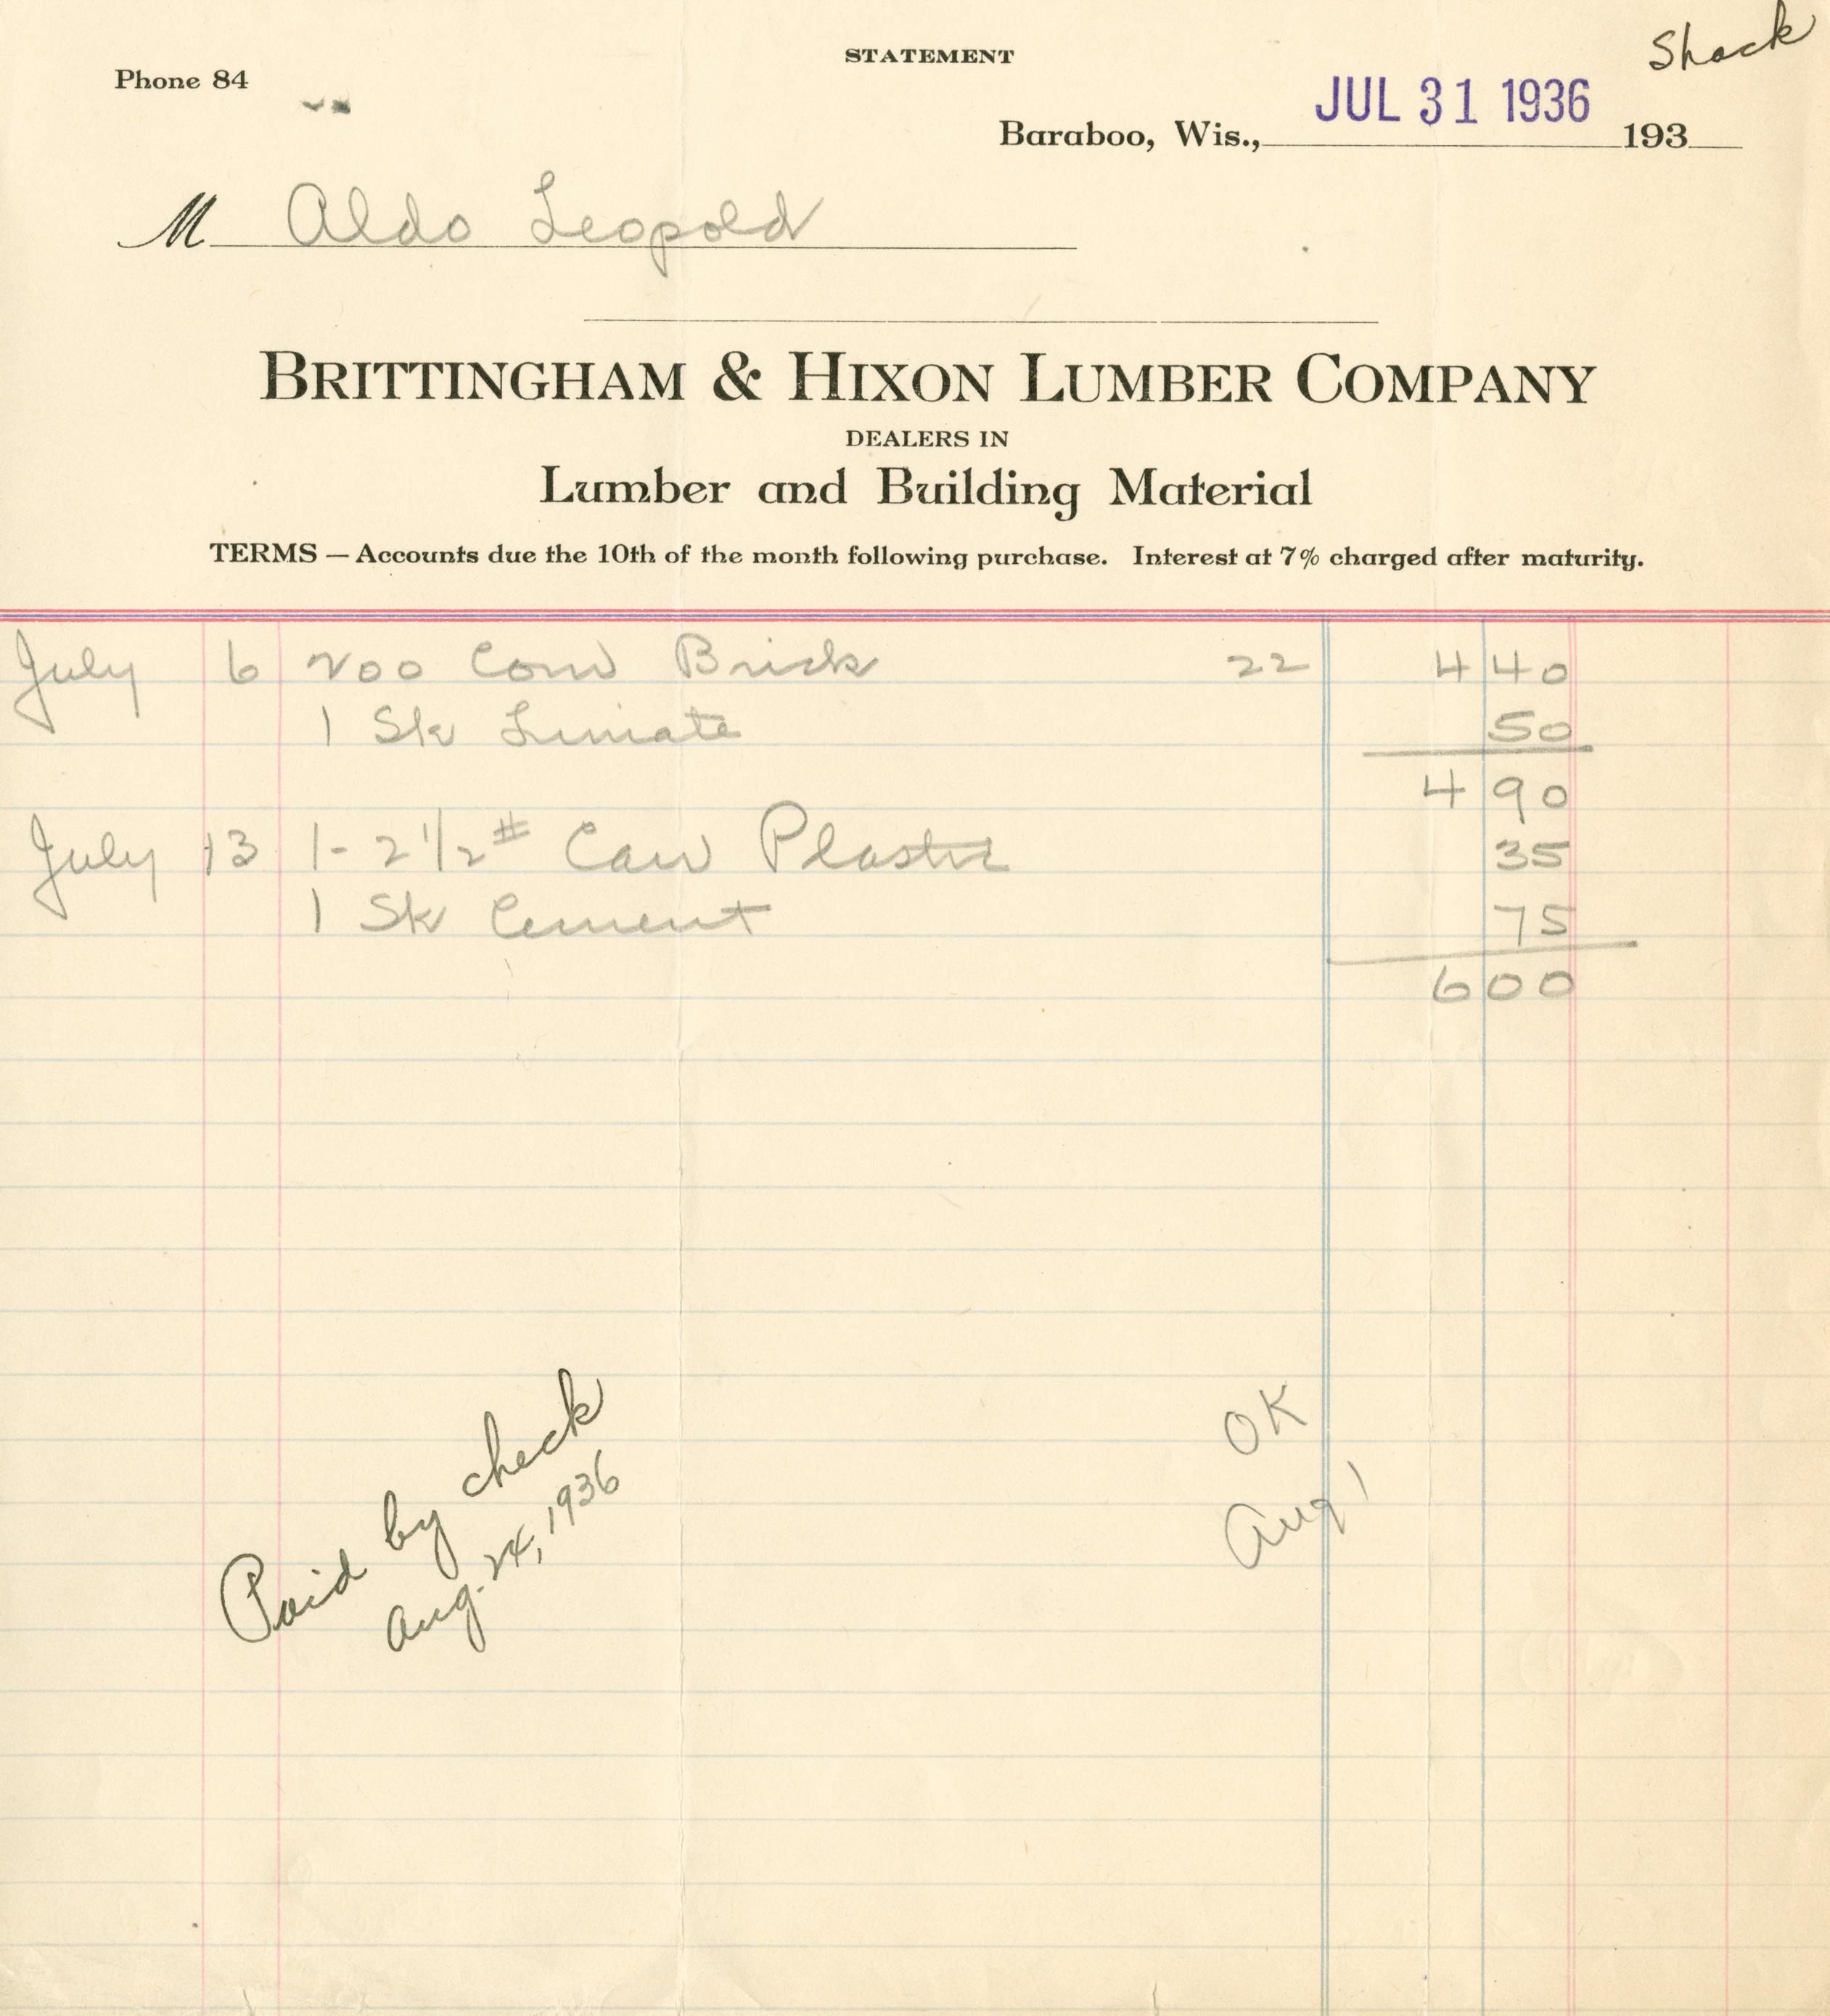 Shack
STATEMENT
Phone 84
JUL 31 1936
Baraboo, Wis., 193
M Aldo Leopold
BRITTINGHAM & HIXON LUMBER COMPANY
DEALERS IN
Lumber and Building Material
TERMS — Accounts due the 10th of the month following purchase. Interest at 7% charged after maturity.
July 6 200 Com Brick 22 4 40
1 Sk Limate 50
4 90
July 13 1 - 2 1/2 # Can Plaster 35
1 Sk Cement 75
6 00
Paid by check
Aug. 24, 1936
OK
Aug 1